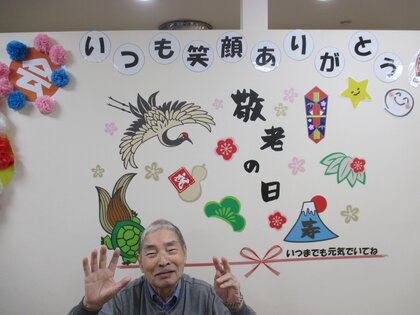 いつも笑顔ありがとう
敬老の日
祝
寿
いつまでも元気でいてね